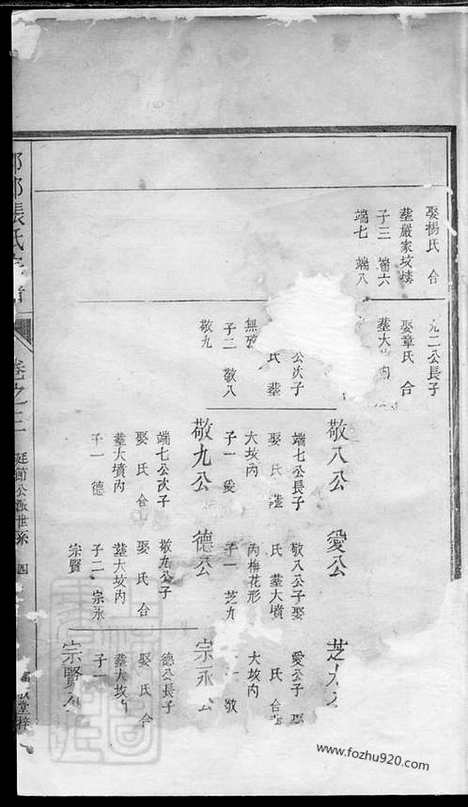 娶楊氏 合
葬嚴家坟塝
子三 端六
端七 端八
九二公長子
娶章氏 合
葬大坟内
公次子
氏 葬
子二 敬八
敬九
敬八公
端七公長子
娶 氏 葬
大坟内
子一 愛
敬九公
端七公次子
娶 氏 合
葬大墳内
子一 德
愛公
敬八公子娶
氏 葬大墳
内梅花形
子一 芝九
德公
敬九公子
娶 氏 合
葬大坟内
子二 宗永
宗賢
愛公子 娶
氏 合
大坟内
子一 敬
宗永
德公長子
娶 氏 合
葬大坟内
子一
宗賢
張氏宗譜
卷之三
延節公派世系
四
堂梓
www.fozhu920.com